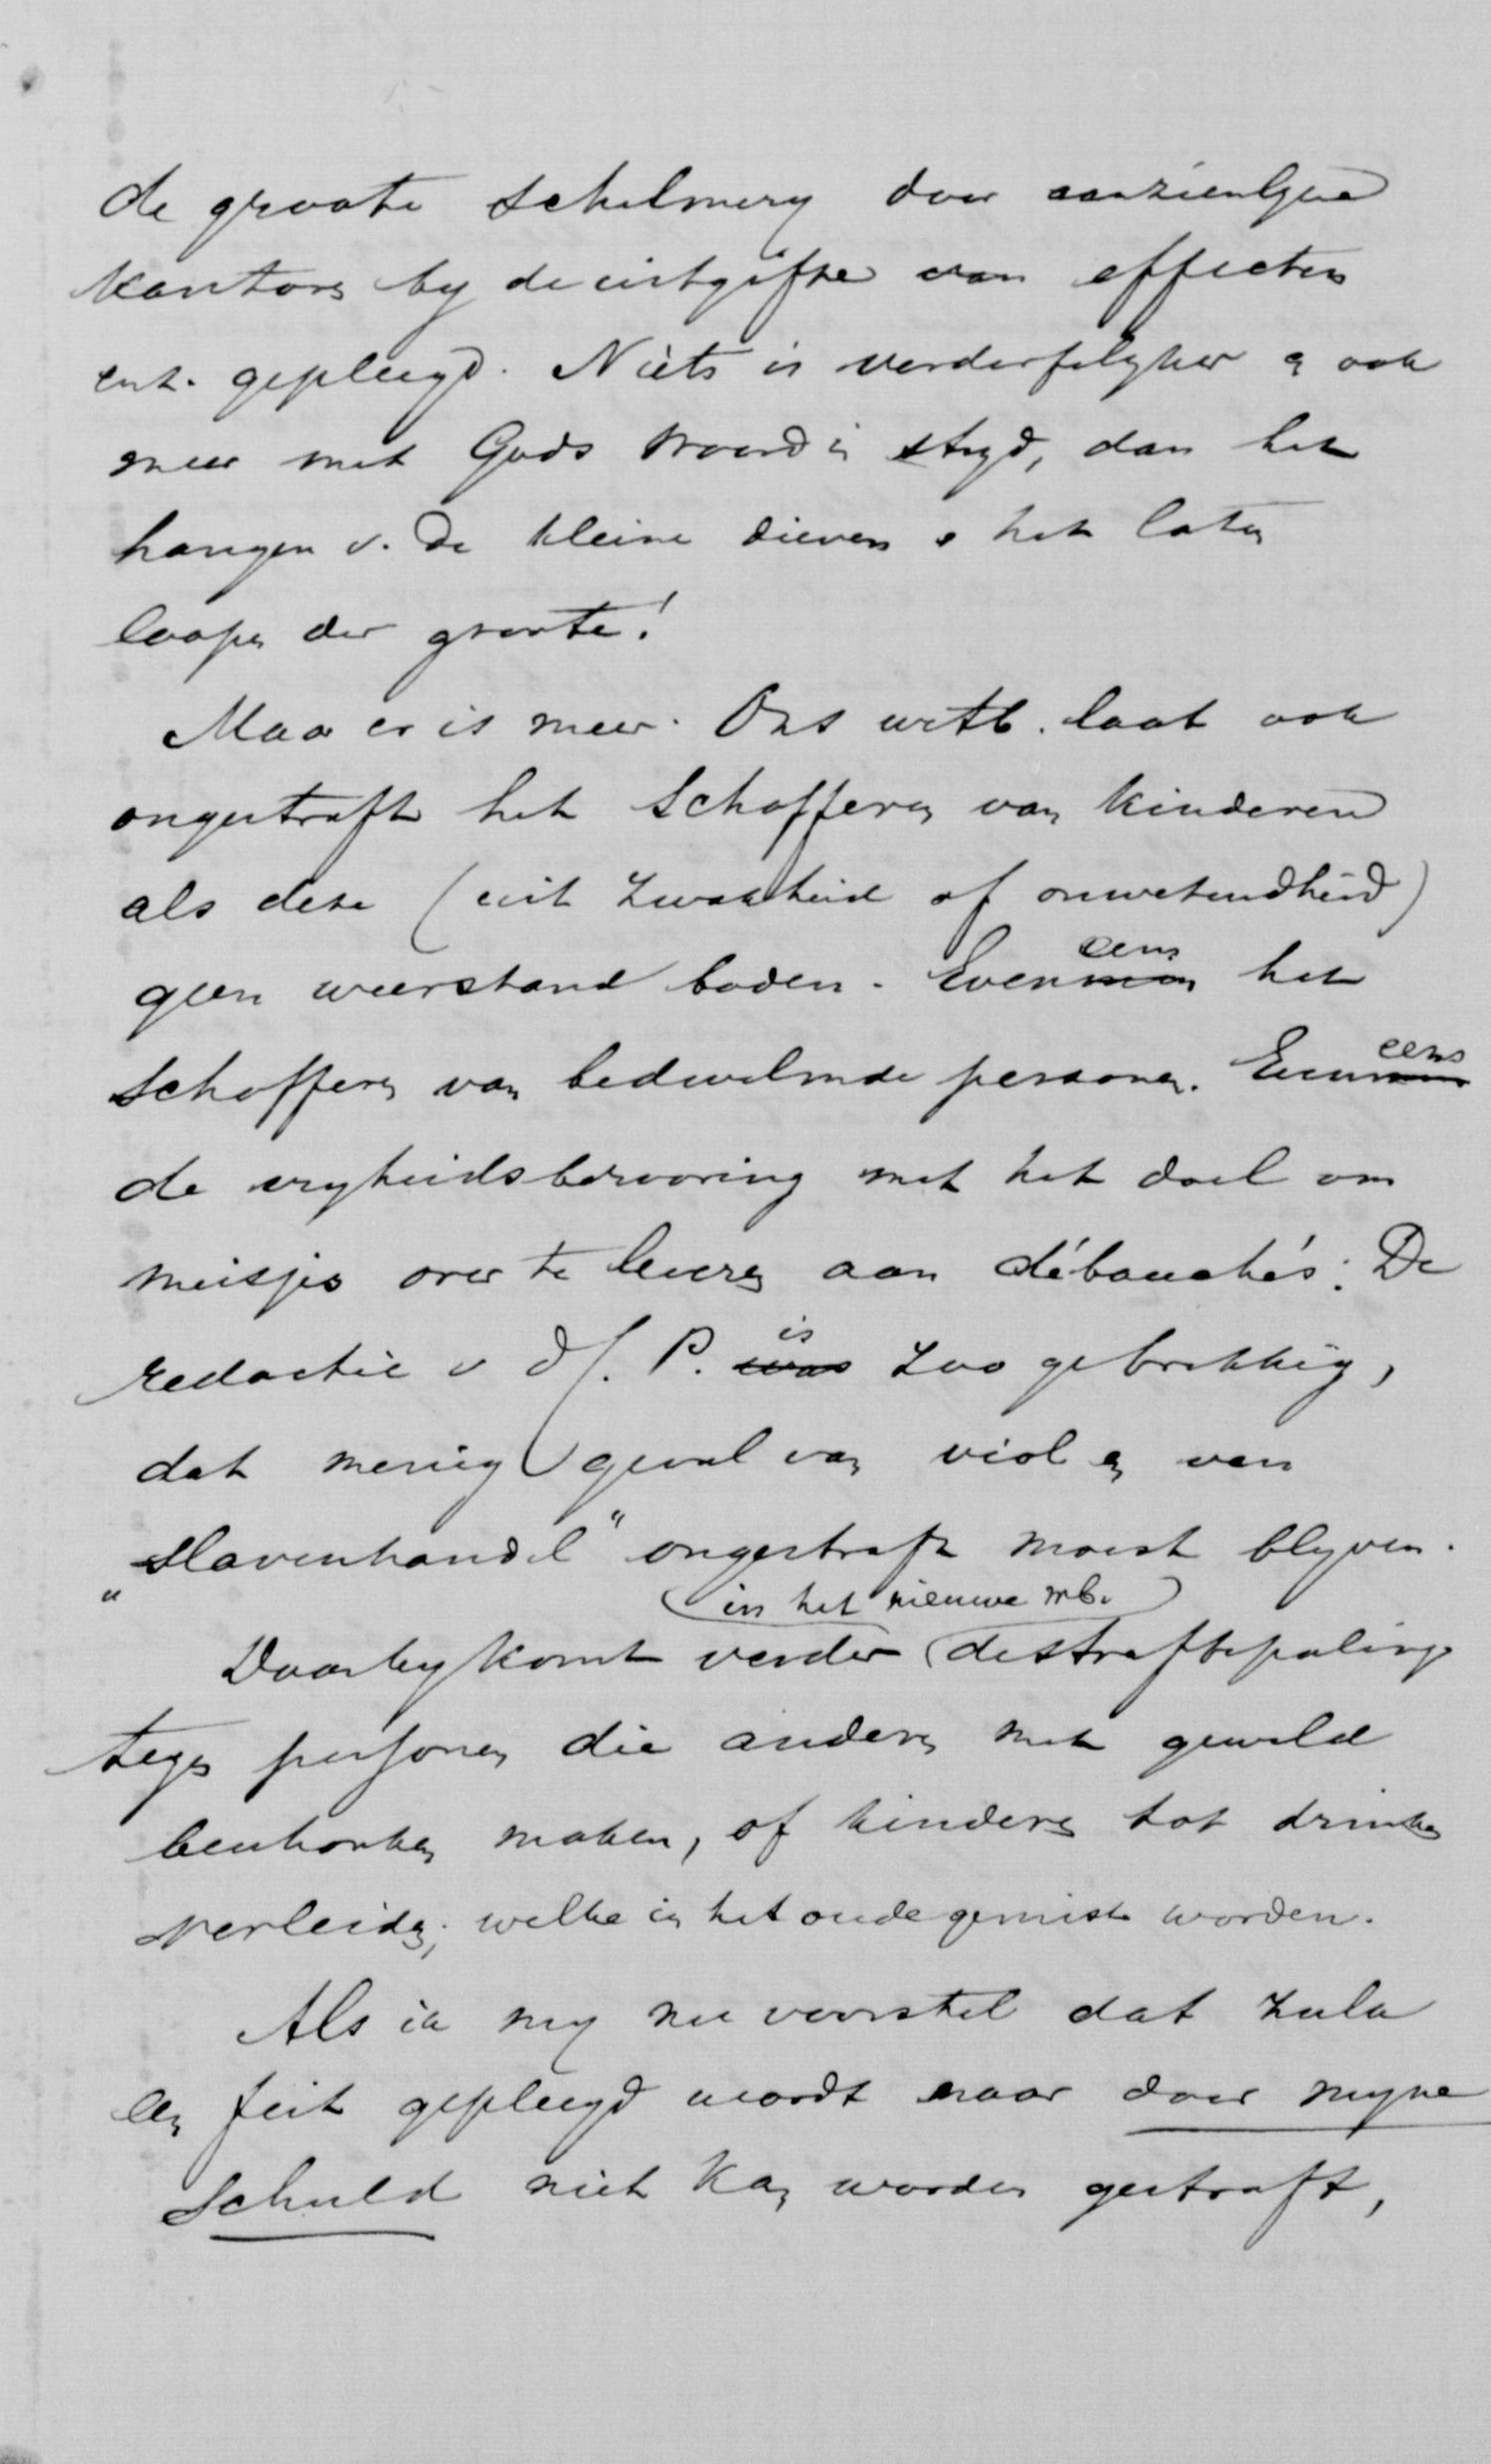 de groote schelmery door aanzienlyke
kantoren by de uitgifte van effecten
enz. gepleegd. Niets is verderfelyker en ook
meer met Gods Woord in stryd, dan het
hangen v. de kleine dieven & het laten
loopen der groote!
Maar er is meer. Ons wetb. laat ook
ongestraft het schofferen van kinderen
als deze (uit zwakheid of onwetendheid)
geen weerstand boden. Evenmin eens het
schofferen van bedwelmde personen. Evenmin eens
de vryheidsberooving met het doel om
meisjes over te leveren aan débauchés. De
redactie v d C. P. was is zoo gebrekkig,
dat menig geval van viol en van
"slavenhandel" ongestraft moest blyven.
(in het nieuwe wb.)
Daarby komt verder de strafbepaling
tegen personen die anderen met geweld
beschonken maken, of kinderen tot drinken
verleiden; welke in het oude gemist worden.
Als ik my nu voorstel dat zulk
een feit gepleegd wordt maar door myne
schuld niet kan worden gestraft,